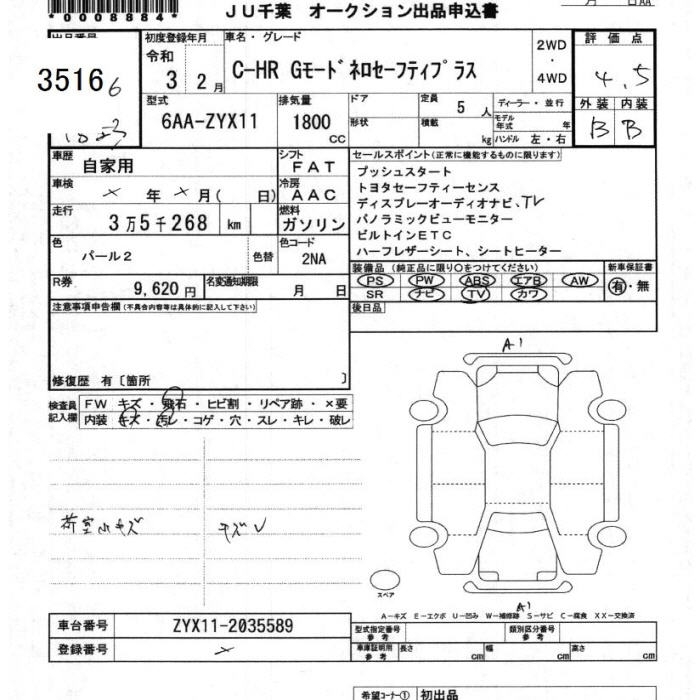 *0008884*
月 日AA
JU千葉 オークション出品申込書
出品番号
35166
初度登録年月
令和
3 2月
車名・グレード
C-HR Gモードネロセーフティプラス
2WD
・
4WD
評価点
4.5
外装 内装
B B
型式
6AA-ZYX11
排気量
1800
CC
ドア
形状
定員 5人
積載 kg
ディーラー・並行
モデル年式 年
ハンドル 左・右
車歴
自家用
シフト
FAT
車検
× 年 × 月( 日)
冷房
AAC
走行
3万5千268 km
燃料
ガソリン
色
パール2
色替
色コード
2NA
R券
9,620円
名変通知期限
月 日
セールスポイント(正常に機能するものに限ります)
プッシュスタート
トヨタセーフティーセンス
ディスプレーオーディオナビ、TV
パノラミックビューモニター
ビルトインETC
ハーフレザーシート、シートヒーター
装備品(純正品に限り○をつけてください)
PS PW ABS エアB AW
SR ナビ TV カワ
新車保証書
有・無
後日品
注意事項申告欄(不具合内容等は具体的に記入して下さい)
修復歴 有〔箇所 〕
検査員記入欄
FW キズ・飛石・ヒビ割・リペア跡・×要
内装 キズ・汚レ・コゲ・穴・スレ・キレ・破レ
荷室小キズ
キズV
A1
スペア
A1
A-キズ E-エクボ U-凹み W-補修跡 S-サビ C-腐食 XX-交換済
車台番号
ZYX11-2035589
登録番号
×
型式指定番号
参考
類別区分番号
参考
車庫証明用
参考
長さ cm
幅 cm
高さ cm
希望コーナー① 初出品